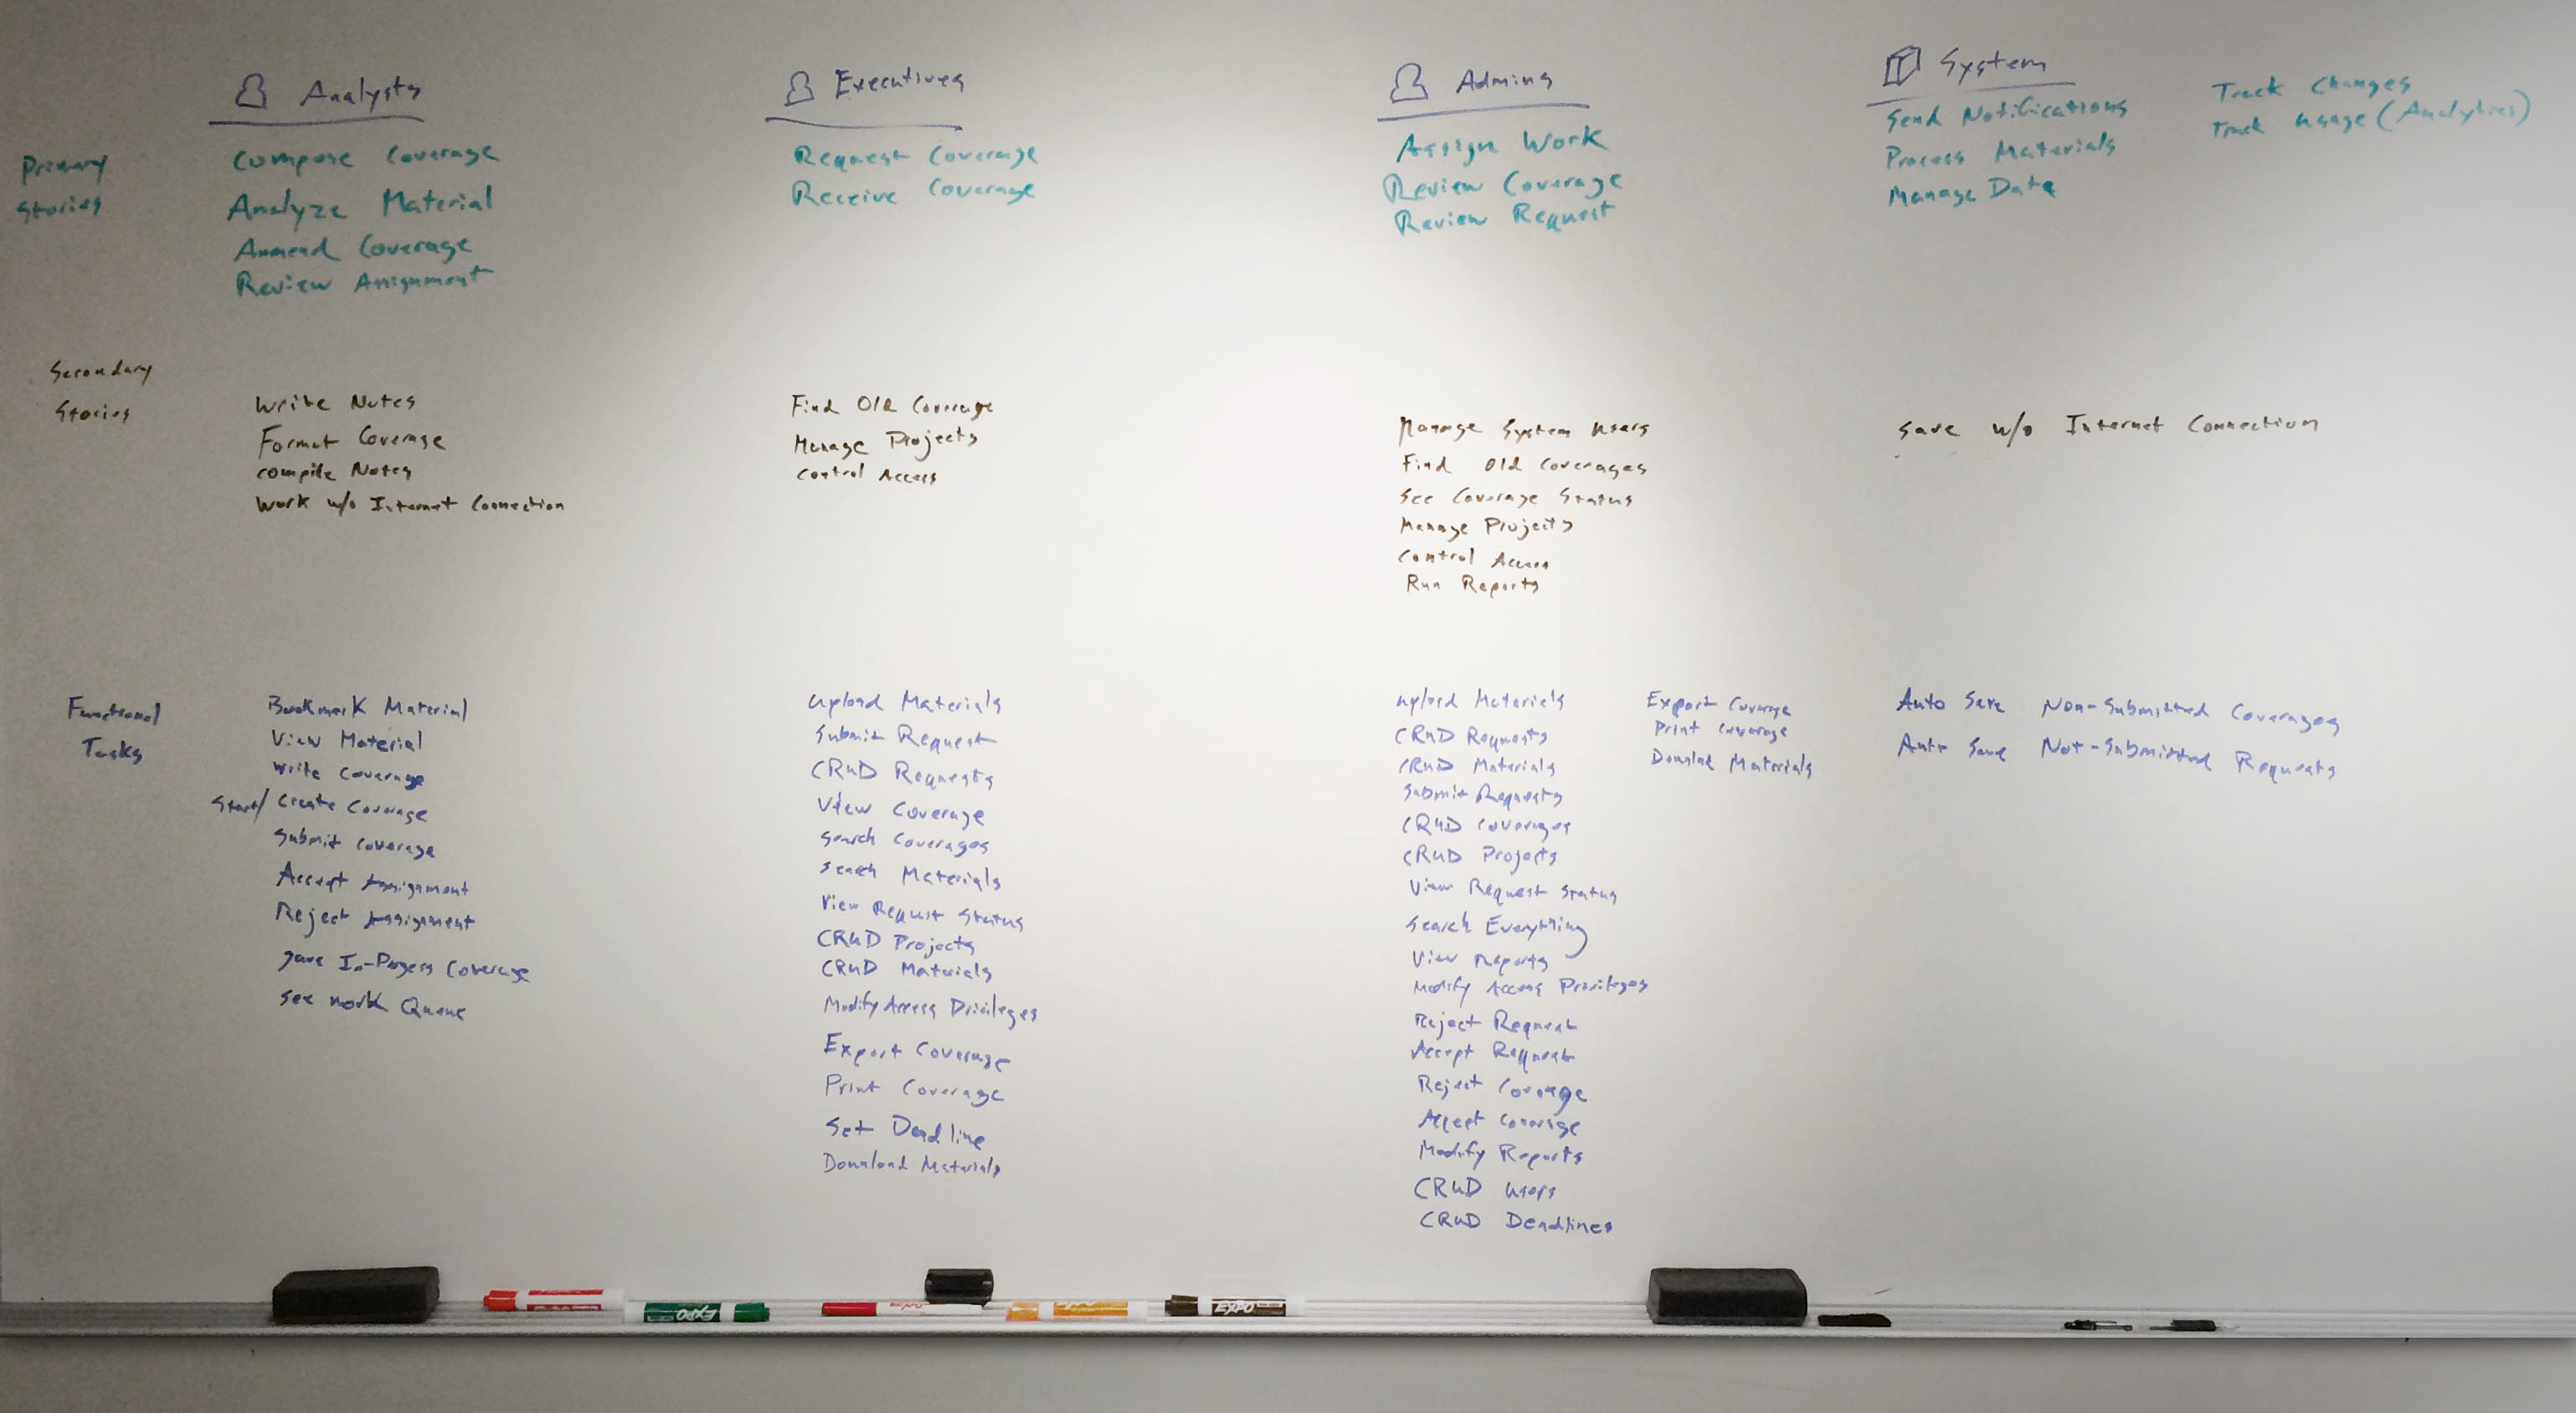 Analysts
Executives
Admins
System
Primary
Stories
Compose Coverage
Analyze Material
Ammend Coverage
Review Assignment
Request Coverage
Receive Coverage
Assign Work
Review Coverage
Review Request
Send Notifications
Process Materials
Manage Data
Track Changes
Track Usage (Analytics)
Secondary
Stories
Write Notes
Format Coverage
Compile Notes
Work w/o Internet Connection
Find Old Coverage
Manage Projects
Control Access
Manage System Users
Find Old Coverages
See Coverage Status
Manage Projects
Control Access
Run Reports
Save w/o Internet Connection
Functional
Tasks
Bookmark Material
View Material
Write Coverage
Start/ Create Coverage
Submit Coverage
Accept Assignment
Reject Assignment
Save In-Progess Coverage
See Work Queue
Upload Materials
Submit Request
CRUD Requests
View Coverage
Search Coverages
Search Materials
View Request Status
CRUD Projects
CRUD Materials
Modify Access Privileges
Export Coverage
Print Coverage
Set Deadline
Download Materials
Upload Materials
CRUD Requests
CRUD Materials
Submit Requests
CRUD Coverages
CRUD Projects
View Request Status
Search Everything
View Reports
Modify Access Privileges
Reject Request
Accept Request
Reject Coverage
Accept Coverage
Modify Reports
CRUD Users
CRUD Deadlines
Export Coverage
Print Coverage
Download Materials
Auto Save Non-Submitted Coverages
Auto Save Not-Submitted Requests
EXPO
EXPO